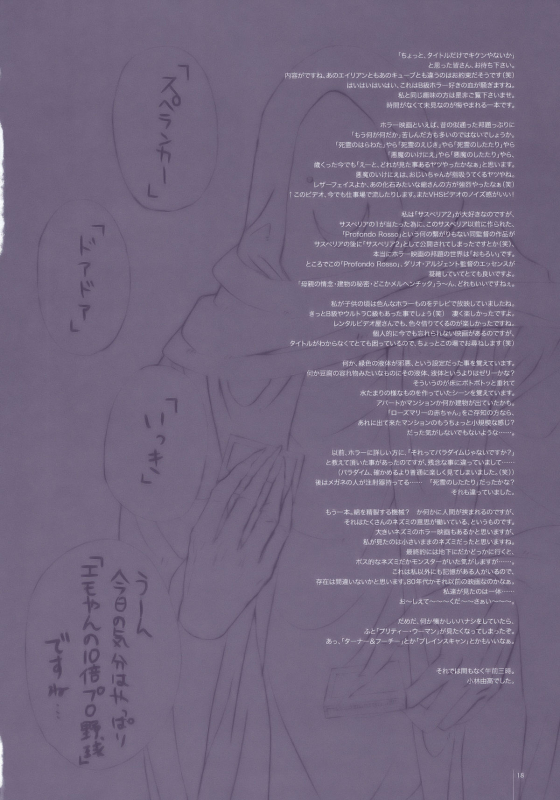 「ちょっと、タイトルだけでキケンやないか」
と思った皆さん、お待ち下さい。
内容がですね、あのエイリアンともあのキューブとも違うのはお約束だそうです(笑)
はいはいはいはい、これはB級ホラー好きの血が騒ぎますね。
私と同じ趣味の方は是非ご覧下さいませ。
時間がなくて未見なのが悔やまれる一本です。
ホラー映画といえば、昔の似通った邦題っぷりに
「もう何が何だか」苦しんだ方も多いのではないでしょうか。
「死霊のはらわた」やら「死霊のえじき」やら「死霊のしたたり」やら
「悪魔のいけにえ」やら「悪魔のしたたり」やら、
歳くった今でも「えーと、どれが見た事あるヤツやったかなぁ」と思います。
悪魔のいけにえは、おじいちゃんが指吸うてくるヤツやね。
レザーフェイスよか、あの化石みたいな爺さんの方が強烈やったなぁ(笑)
!このビデオ、今でも仕事場で流したります。またVHSビデオのノイズ感がいい!
私は「サスペリア2」が大好きなのですが、
サスペリアの1が当たった為に、このサスペリア以前に作られた、
「Profondo Rosso」という何の繋がりもない同監督の作品が
サスペリアの後に「サスペリア2」として公開されてしまったですとか(笑)、
本当にホラー映画の邦題の世界は「おもろい」です。
ところでこの「Profondo Rosso」、ダリオ・アルジェント監督のエッセンスが
凝縮していてとても良いですよ。
「母親の情念・建物の秘密・どこかメルヘンチック」う〜ん、どれもいいですねぇ。
私が子供の頃は色んなホラーものをテレビで放映していましたね。
きっとB級やウルトラC級もあった事でしょう(笑) 凄く楽しかったですよ。
レンタルビデオ屋さんでも、色々借りてくるのが楽しかったですね。
個人的に今でも忘れられない映画があるのですが、
タイトルがわからなくてとても困っているので、ちょっとこの場でお尋ねします(笑)
何か、緑色の液体が邪悪、という設定だった事を覚えています。
何か豆腐の容れ物みたいなものにその液体、液体というよりはゼリーかな?
そういうのが床にボトボトッと垂れて
水たまりの様なものを作っていたシーンを覚えています。
アパートかマンションか何か建物が出ていたかも。
「ローズマリーの赤ちゃん」をご存知の方なら、
あれに出て来たマンションのもうちょっと小規模な感じ?
だった気がしないでもないような……。
以前、ホラーに詳しい方に、「それってパラダイムじゃないですか?」
と教えて頂いた事があったのですが、残念な事に違っていまして……
(パラダイム、確かめるより普通に楽しく見てしまいました。(笑))
後はメガネの人が注射器持ってる…… 「死霊のしたたり」だったかな?
それも違っていました。
もう一本。綿を精製する機械? か何かに人間が挟まれるのですが、
それはたくさんのネズミの意思が働いている、というものです。
大きいネズミのホラー映画もあるかと思いますが、
私が見たのは小さいままのネズミだったと思いますね。
最終的には地下にだかどっかに行くと、
ボス的なネズミだかモンスターがいた気がしますが……
これは私以外にも記憶がある人がいるので、
存在は間違いないかと思います。80年代かそれ以前の映画なのかなぁ。
私達が見たのは一体……
お〜しえて〜〜〜くだ〜〜さぁい〜〜〜。
だめだ、何か懐かしいハナシをしていたら、
ふと「プリティー・ウーマン」が見たくなってしまったぞ。
あっ、「ターナー&フーチー」とか「ブレインスキャン」とかもいいなぁ。
それでは間もなく午前三時。
小林由高でした。
「スペランカー」
「ドアドア」
「いっき」
うーん
今日の気分はやっぱり
「エモやんの10倍プロ野球」
ですね…
18